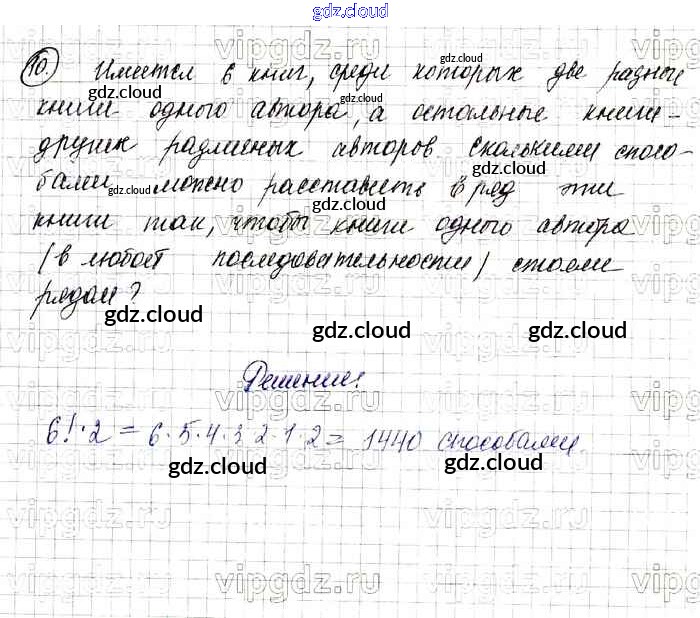 gdz.cloud
gdz.cloud
10. Имеется 6 книг, среди которых две разные
книги одного автора, а остальные книги -
gdz.cloud
других различных авторов Сколькими спосо-
бами можно расставить в ряд эти
gdz.cloud gdz.cloud
книги так, чтобы книги одного автора
gdz.cloud
/в любой последовательности/ стояли
рядом?
gdz.cloud gdz.cloud gdz.cloud
Решение:
6!·2 = 6·5·4·3·2·1·2 = 1440 способами.
gdz.cloud gdz.cloud
vipgdz.ru vipgdz.ru
vipgdz.ru vipgdz.ru